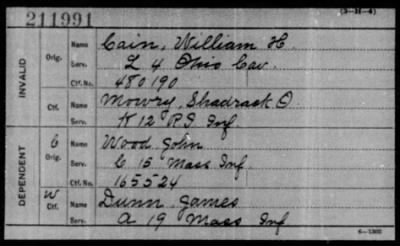 (3-H-4)
211991
INVALID
Orig.
Name Cain, William H.
Serv. L 4 Ohio Cav.
Ctf. No. 480190
Ctf.
Name Mowry, Shadrack O.
Serv. K 12 R I Inf
DEPENDENT
C
Orig.
Name Wood John
Serv. C 15 Mass Inf
Ctf. No. 165524
W
Ctf.
Name Dunn, James
Serv. A 19 Mass Inf